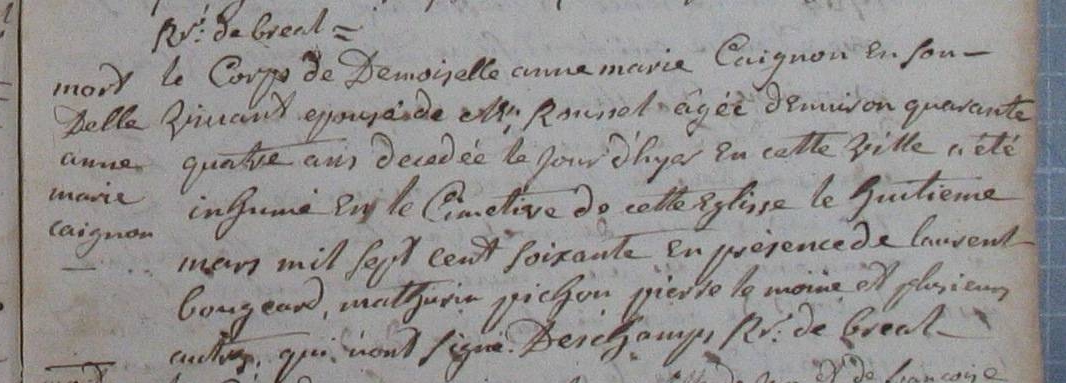 Rr. de breal =
mort
Delle
anne
marie
caignon
le Corps de Demoiselle anne marie Caignon En son
Vivant epouse de Mr. Roussel âgée d'Environ quarante
quatre ans decedée le jour d'hyer En cette Ville a été
inhumé En le Cimetiere de cette Eglisse le huitieme
mars mil sept cent soixante En présence de laurent
bougeard, mathurin pichon pierre le moine et plusieurs
autres, qui n'ont signé. Deschamps Rr. de breal